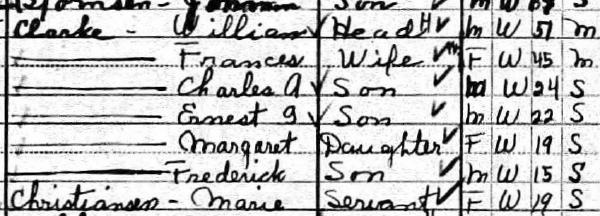 Son M W S
Clarke - William Head M W 51 M
Frances Wife F W 45 M
Charles A Son M W 24 S
Ernest J Son M W 22 S
Margaret Daughter F W 19 S
Frederick Son M W 15 S
Christiansen - Marie Servant F W 19 S